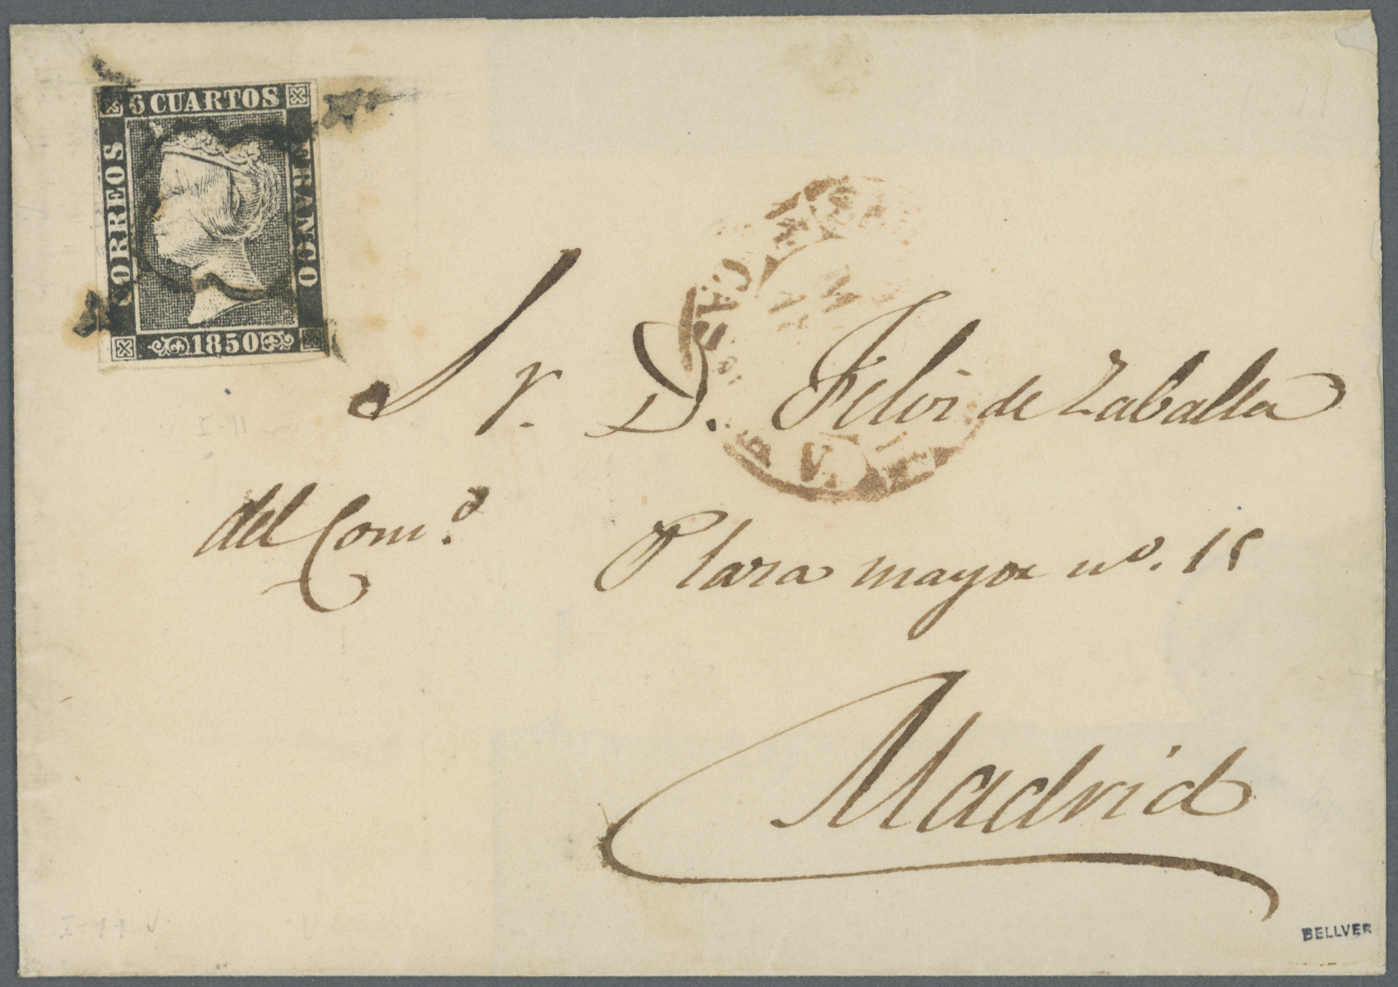 6 CUARTOS
CORREOS
FRANCO
1850
Sr. D. Felix de Zaballa
del Comº.
Plaza mayor nº. 15
Madrid
BELLVER